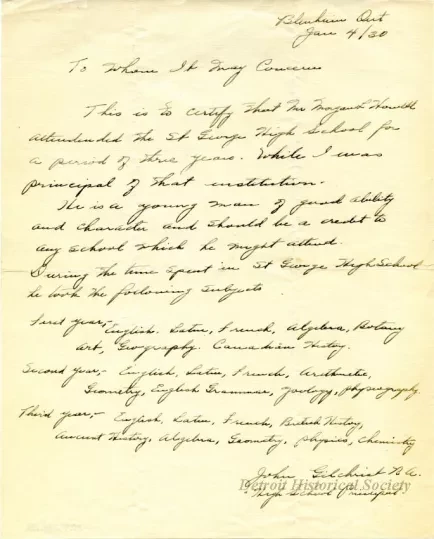 Blenheim Ont
Jan 4/30
To Whom It May Concern
This is to certify that Mr
attendended the St George High School for
a period of three years. While I was
principal of that institution.
He is a young man of good ability
and character and should be a credit to
any school which he might attend.
During the time spent in St George High School
he took the following subjects
First year,- English. Latin, French, Algebra, Botany
Art, Geography. Canadian History.
Second year,- English, Latin, French, Arithmetic,
Geometry, English Grammar, Zoology, Physiography.
Third year,- English, Latin, French, British History,
Ancient History, Algebra, Geometry, Physics, Chemistry
John Gilchrist B.A.
High School Principal.
Detroit Historical Society